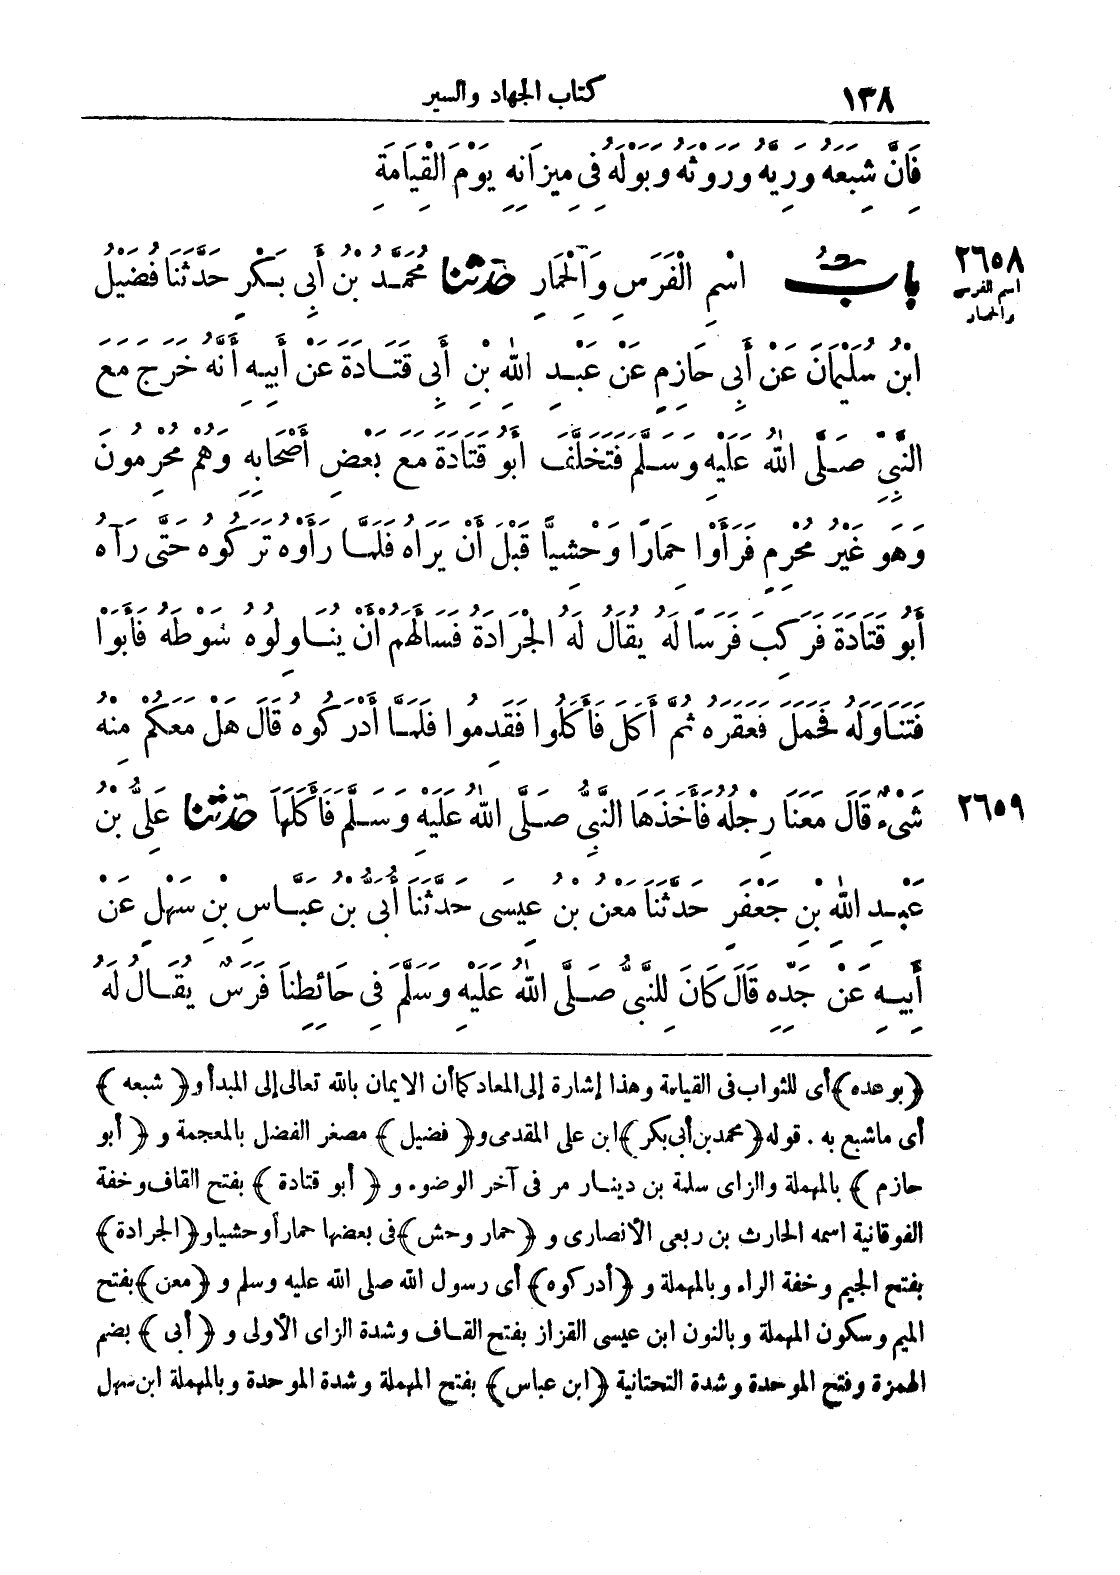 ١٣٨
كتاب الجهاد والسير
فَإِنَّ شِبَعَهُ وَرِيَّهُ وَرَوْثَهُ وَبَوْلَهُ فِي مِيزَانِهِ يَوْمَ الْقِيَامَةِ
٢٦٥٨
اسم الفرس
والحمار
بَابُ اسْمِ الْفَرَسِ وَالْحِمَارِ حَدَّثَنَا مُحَمَّدُ بْنُ أَبِي بَكْرٍ حَدَّثَنَا فُضَيْلُ
ابْنُ سُلَيْمَانَ عَنْ أَبِي حَازِمٍ عَنْ عَبْدِ اللهِ بْنِ أَبِي قَتَادَةَ عَنْ أَبِيهِ أَنَّهُ خَرَجَ مَعَ
النَّبِيِّ صَلَّى اللهُ عَلَيْهِ وَسَلَّمَ فَتَخَلَّفَ أَبُو قَتَادَةَ مَعَ بَعْضِ أَصْحَابِهِ وَهُمْ مُحْرِمُونَ
وَهُوَ غَيْرُ مُحْرِمٍ فَرَأَوْا حِمَارًا وَحْشِيًّا قَبْلَ أَنْ يَرَاهُ فَلَمَّا رَأَوْهُ تَرَكُوهُ حَتَّى رَآهُ
أَبُو قَتَادَةَ فَرَكِبَ فَرَسًا لَهُ يُقَالُ لَهُ الْجَرَادَةُ فَسَأَلَهُمْ أَنْ يُنَاوِلُوهُ سَوْطَهُ فَأَبَوْا
فَتَنَاوَلَهُ فَحَمَلَ فَعَقَرَهُ ثُمَّ أَكَلَ فَأَكَلُوا فَقَدِمُوا فَلَمَّا أَدْرَكُوهُ قَالَ هَلْ مَعَكُمْ مِنْهُ
٢٦٥٩
شَيْءٌ قَالَ مَعَنَا رِجْلُهُ فَأَخَذَهَا النَّبِيُّ صَلَّى اللهُ عَلَيْهِ وَسَلَّمَ فَأَكَلَهَا حَدَّثَنَا عَلِيُّ بْنُ
عَبْدِ اللهِ بْنِ جَعْفَرٍ حَدَّثَنَا مَعْنُ بْنُ عِيسَى حَدَّثَنَا أُبَيُّ بْنُ عَبَّاسِ بْنِ سَهْلٍ عَنْ
أَبِيهِ عَنْ جَدِّهِ قَالَ كَانَ لِلنَّبِيِّ صَلَّى اللهُ عَلَيْهِ وَسَلَّمَ فِي حَائِطِنَا فَرَسٌ يُقَالُ لَهُ
﴿بوعده﴾ أى للثواب فى القيامة وهذا إشارة إلى المعاد كما أن الايمان بالله تعالى إلى المبدأ و﴿شبعه﴾
أى ماشبع به . قوله ﴿محمد بن أبى بكر﴾ ابن على المقدمى و﴿فضيل﴾ مصغر الفضل بالمعجمة و ﴿أبو
حازم﴾ بالمهملة والزاى سلمة بن دينار مر فى آخر الوضوء و ﴿أبو قتادة﴾ بفتح القاف وخفة
الفوقانية اسمه الحارث بن ربعى الأنصارى و ﴿حمار وحش﴾ فى بعضها حمار أو حشيا و﴿الجرادة﴾
بفتح الجيم وخفة الراء وبالمهملة و ﴿أدركوه﴾ أى رسول الله صلى الله عليه وسلم و ﴿معن﴾ بفتح
الميم وسكون المهملة وبالنون ابن عيسى القزاز بفتح القاف وشدة الزاى الأولى و ﴿أبى﴾ بضم
الهمزة وفتح الموحدة وشدة التحتانية ﴿ابن عباس﴾ بفتح المهملة وشدة الموحدة وبالمهملة ابن سهل